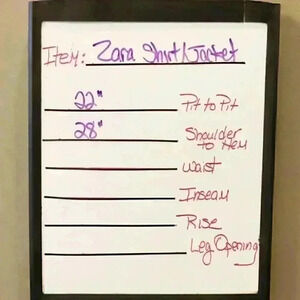 Item: Zara Shirt/Jacket
22" Pit to Pit
28" Shoulder
to Hem
Waist
Inseam
Rise
Leg Opening